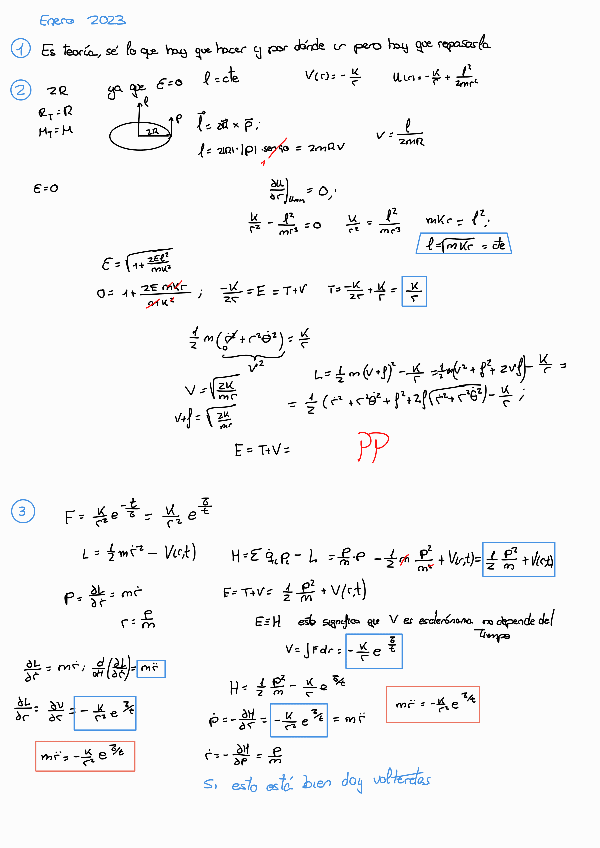 Enero 2023
1 Es teoría, sé lo que hay que hacer y por dónde ir pero hay que repasarla
2 2R ya que E=0 l=cte V(r)=-K/r U(r)=-K/r + l²/2mr²
R_T=R
M_T=M
l
2R
P
l⃗ = 2R⃗ × p⃗;
l = |2R|·|p|·sen90 = 2mRV
1
V = l/2mR
E=0
∂U/∂r| = 0;
K/r² - l²/mr³ = 0 K/r² = l²/mr³ mKr = l²;
l=√mKr = cte
E = √1+2El²/mK²
0 = 1+ 2E mKr/mK² ; -K/2r = E = T+V T=-K/2r + K/r = K/r
1/2 m(ṙ² + r²θ̇²) = K/r
0
V²
V = √2K/mr
v+f = √2K/mr
L = 1/2 m(v+f)² - K/r = 1/2 m(v² + f² + 2vf) - K/r =
= 1/2 (ṙ² + r²θ̇² + f² + 2f√ṙ² + r²θ̇²) - K/r ;
E = T+V =
PP
3
F = K/r² e^-t/σ = K/r² e^σ/t
L = 1/2 mṙ² - V(r,t)
H = Σ q̇ᵢpᵢ - L = p/m·p - 1/2 m p²/m² + V(r,t) = 1/2 p²/m + V(r,t)
P = ∂L/∂ṙ = mṙ
E = T+V = 1/2 p²/m + V(r,t)
ṙ = p/m
E=H esto significa que V es esclerónomo no depende del
Tiempo
V = ∫F dr = -K/r e^σ/t
∂L/∂ṙ = mṙ; d/dt(∂L/∂ṙ) = mr̈
H = 1/2 p²/m - K/r e^σ/t
∂L/∂r = ∂V/∂r = -K/r² e^σ/t
ṗ = -∂H/∂r = -K/r² e^σ/t = mr̈
mr̈ = -K/r² e^σ/t
mr̈ = -K/r² e^σ/t
ṙ = -∂H/∂p = p/m
Si esto está bien doy volteretas